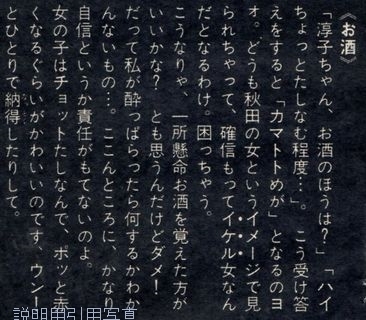 《お酒》
「淳子ちゃん、お酒のほうは？」「ハイ
ちょっとたしなむ程度…。」 こう受け答
えをすると「カマトトめが」となるのヨ
ォ。どうも秋田の女というイメージで見
られちゃって、確信もってイケル女なん
だとなるわけ。困っちゃう。
こうなりゃ、一所懸命お酒を覚えた方が
いいかな？ とも思うんだけどダメ！
だって私が酔っぱらったら何するかわか
んないもの…。ここんところに、かなり
自信というか責任がもてないのよ。
女の子はチョットたしなんで、ポッと赤
くなるぐらいがかわいいのです、ウン！
とひとりで納得したりして。
説明用引用写真